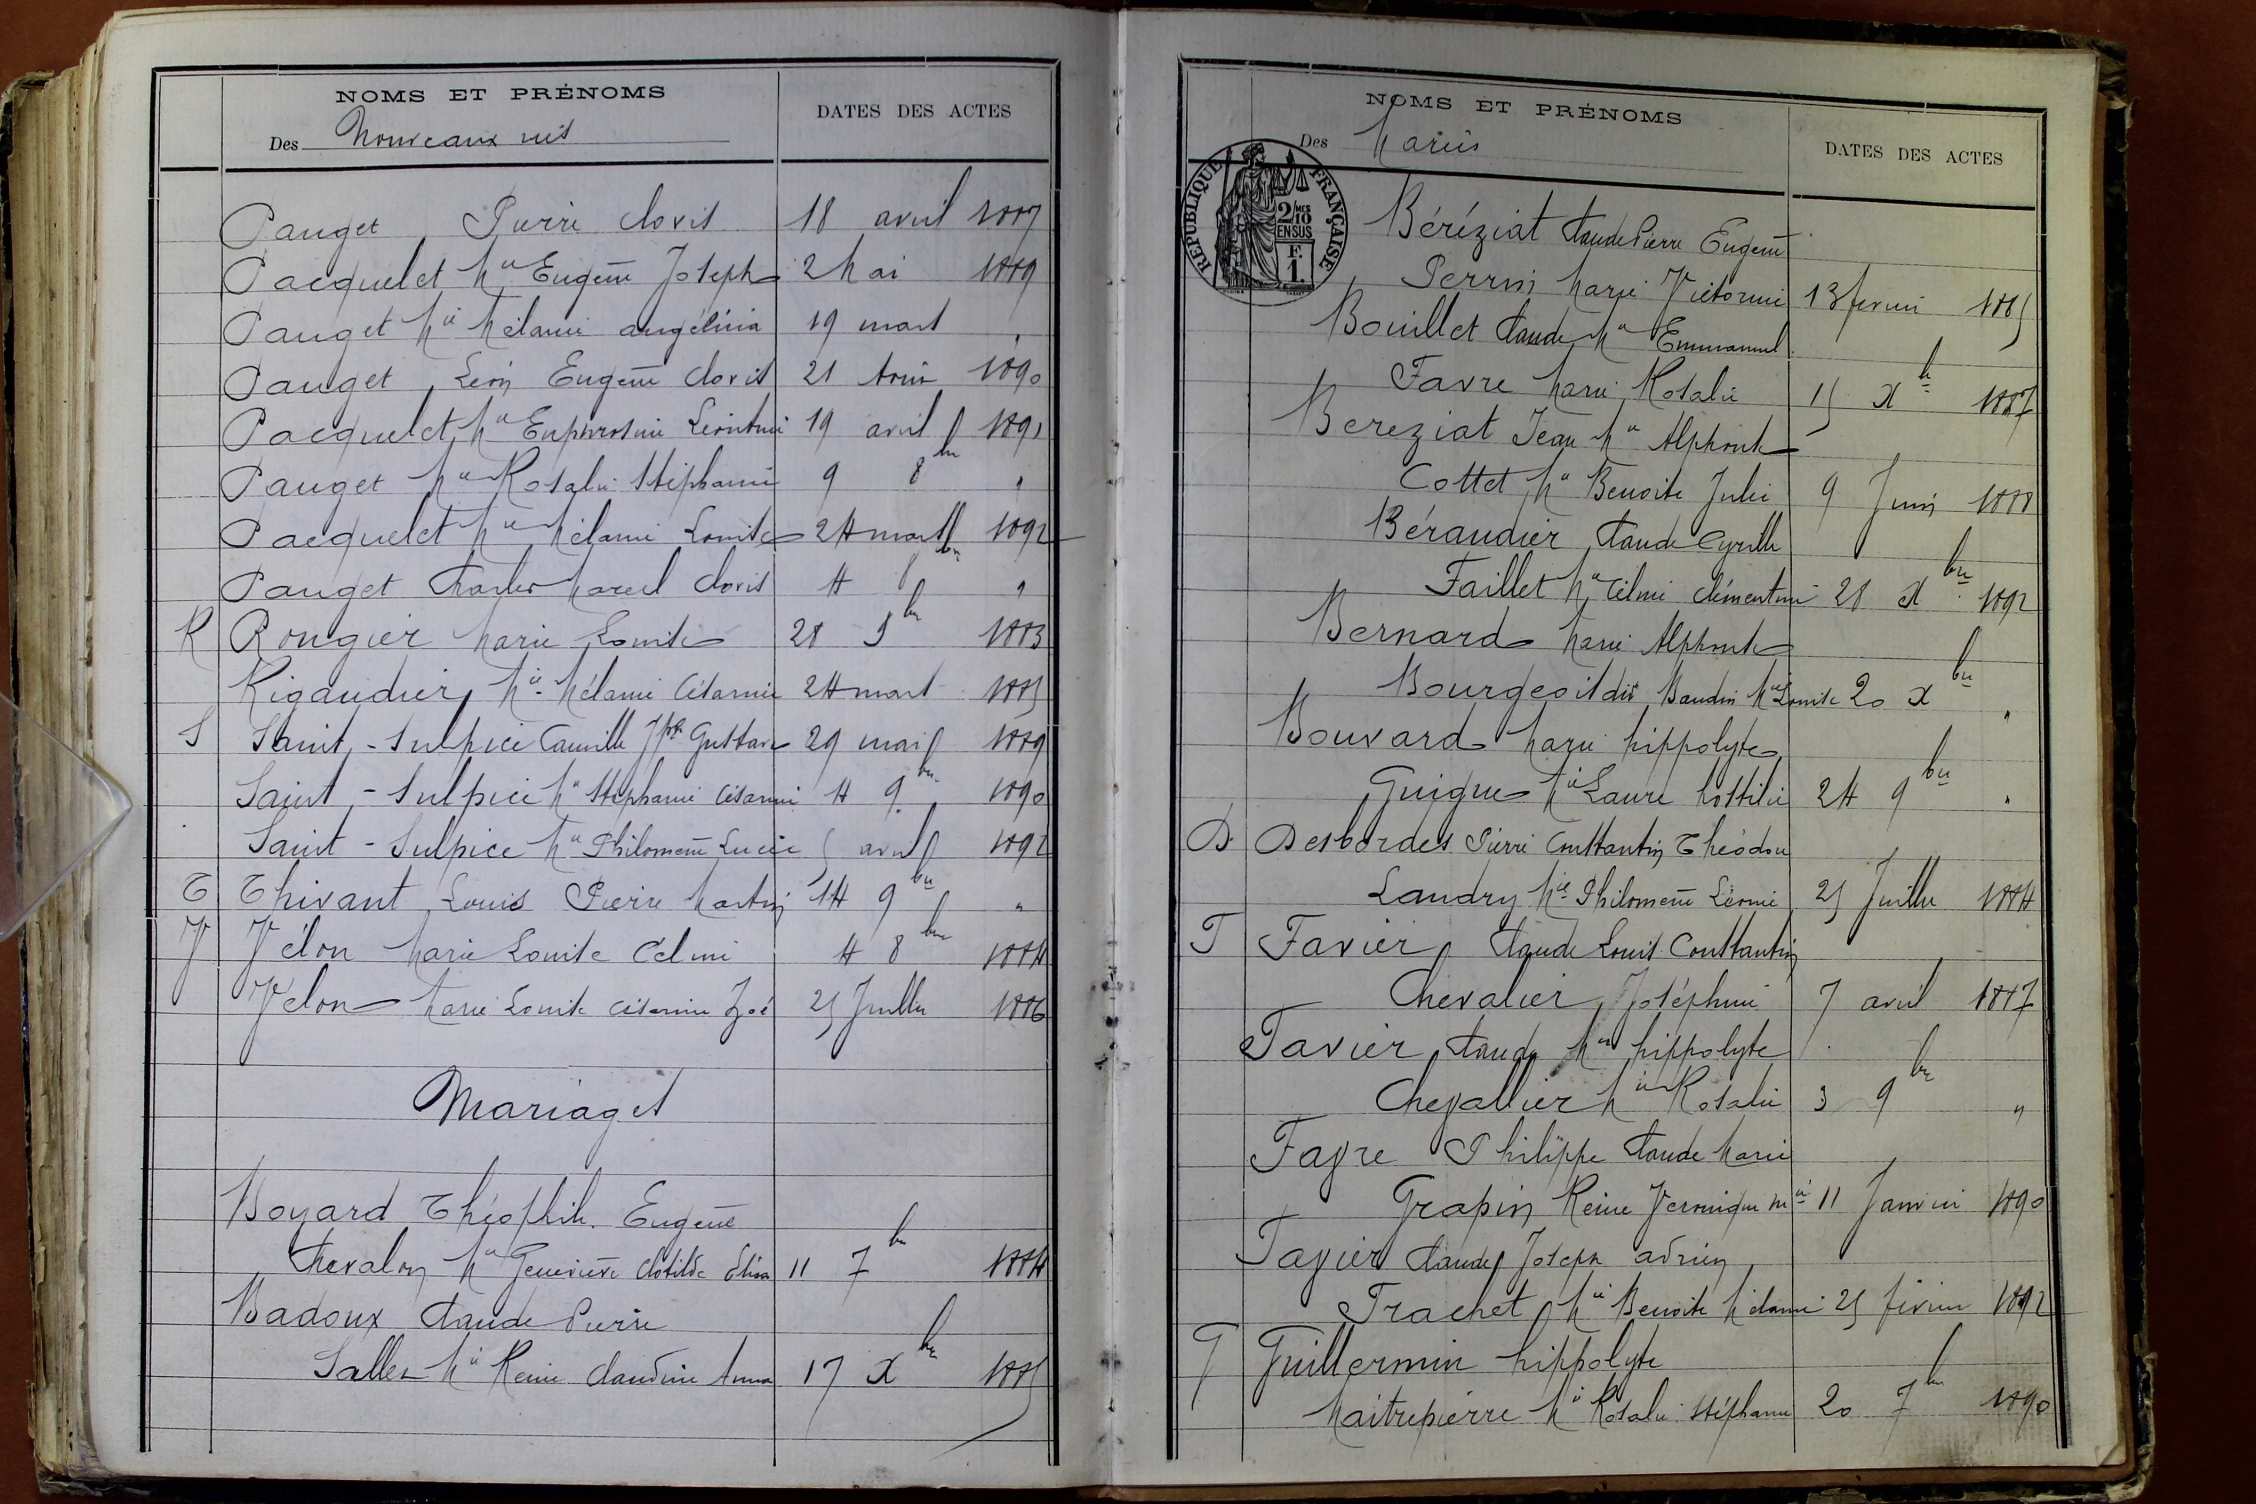 NOMS ET PRÉNOMS
Des Nouveaux nés
DATES DES ACTES
Panget Pierre Clovis 18 avril 1887
Pacquelet Mie Eugène Joseph 2 Mai 1889
Panget Mie Mélanie angélina 19 mars "
Panget Léon Eugène Clovis 21 Aout 1890
Pacquelet Mie Euphrosine Léontine 19 avril 1891
Panget Mie Rosalie Stéphanie 9 8bre "
Pacquelet Mie Mélanie Louise 24 mars 1892
Panget Charles Marcel Clovis 4 8bre "
R Rougier Marie Louise 28 1883
Rigaudier Mie Mélanie Césarine 24 mars 1885
S Saint-Sulpice Camille Jph Gustave 29 mai 1889
Saint-Sulpice Mie Stéphanie Césarine 4 9bre 1890
Saint-Sulpice Mie Philomène Lucie 5 avril 1892
T Thivant Louis Pierre Martin 14 9bre "
V Vélon Marie Louise Céline 4 8bre 1884
Vélon Marie Louise Césarine Zoé 25 Juillet 1886
Mariages
Boyard Théophile Eugène
Chevalon Mie Geneviève Clotilde Elisa 11 7bre 1884
Badoux Claude Pierre
Salles Mie Reine Claudine Anna 17 Xbre 1885
NOMS ET PRÉNOMS
Des Mariés
DATES DES ACTES
RÉPUBLIQUE FRANÇAISE
2/10 MES
EN SUS
F.
1.
Béréziat Claude Pierre Eugène
Perrin Marie Victorine 13 fevrier 1885
Bouillet Claude Mie Emmanuel
Favre Marie Rosalie 15 Xbre 1887
Bereziat Jean Mie Alphonse
Cottet Mie Benoite Julie 9 Juin 1888
Béraudier Claude Cyrille
Faillet Mie Céline Clémentine 28 Xbre 1892
Bernard Marie Alphonse
Bourgeois dit Baudin Mie Louise 20 Xbre "
Bouvard Marie hippolyte
Guigue Mie Laure 24 9bre "
D Desbordes Pierre Constantin Théodore
Landry Mie Philomène Léonie 25 Juillet 1884
F Favier Claude Louis Constantin
Chevalier Joséphine 7 avril 1887
Favier Claude Mie hippolyte
Chevallier Mie Rosalie 3 9bre "
Favre Philippe Claude Marie
Grapin Reine Veronique Mie 11 Janvier 1890
Favier Claude Joseph adrien
Trachet Mie Benoite Mélanie 25 février 1892
G Guillermin hippolyte
Maitrepierre Mie Rosalie Stéphanie 20 7bre 1890